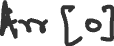 Arr [0]